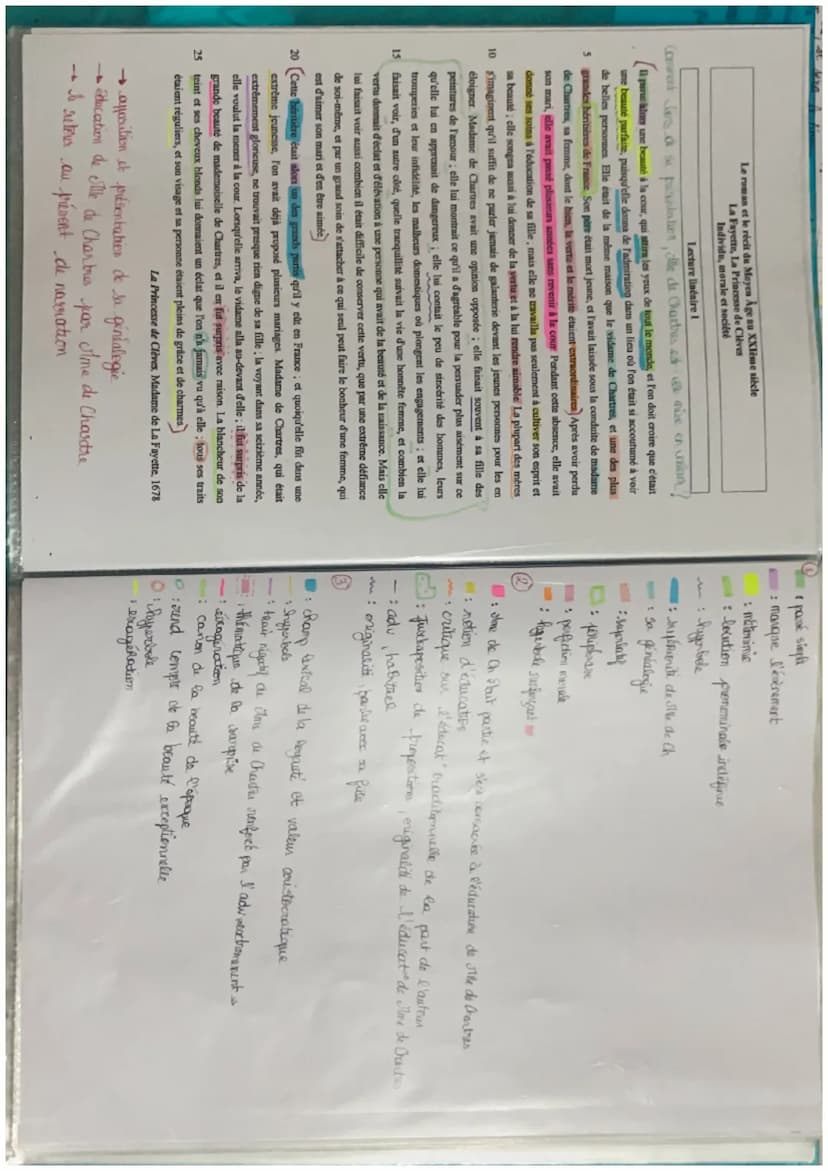 Le roman et le récit du Moyen Âge au XXIème siècle
La Fayette, La Princesse de Clèves
Individu, morale et société
Lecture linéaire 1
Comment dans sa présentation, Mlle de Chartres est-elle mise en valeur ?
Il parut alors une beauté à la cour, qui attira les yeux de tout le monde, et l'on doit croire que c'était
une beauté parfaite, puisqu'elle donna de l'admiration dans un lieu où l'on était si accoutumé à voir
de belles personnes. Elle était de la même maison que le vidame de Chartres, et une des plus
5 grandes héritières de France. Son père était mort jeune, et l'avait laissée sous la conduite de madame
de Chartres, sa femme, dont le bien, la vertu et le mérite étaient extraordinaires. Après avoir perdu
son mari, elle avait passé plusieurs années sans revenir à la cour. Pendant cette absence, elle avait
donné ses soins à l'éducation de sa fille ; mais elle ne travailla pas seulement à cultiver son esprit et
sa beauté ; elle songea aussi à lui donner de la vertu et à la lui rendre aimable. La plupart des mères
10 s'imaginent qu'il suffit de ne parler jamais de galanterie devant les jeunes personnes pour les en
éloigner. Madame de Chartres avait une opinion opposée ; elle faisait souvent à sa fille des
peintures de l'amour ; elle lui montrait ce qu'il a d'agréable pour la persuader plus aisément sur ce
qu'elle lui en apprenait de dangereux ; elle lui contait le peu de sincérité des hommes, leurs
tromperies et leur infidélité, les malheurs domestiques où plongent les engagements ; et elle lui
15 faisait voir, d'un autre côté, quelle tranquillité suivait la vie d'une honnête femme, et combien la
vertu donnait d'éclat et d'élévation à une personne qui avait de la beauté et de la naissance. Mais elle
lui faisait voir aussi combien il était difficile de conserver cette vertu, que par une extrême défiance
de soi-même, et par un grand soin de s'attacher à ce qui seul peut faire le bonheur d'une femme, qui
est d'aimer son mari et d'en être aimée.
20 Cette héritière était alors un des grands partis qu'il y eût en France ; et quoiqu'elle fût dans une
extrême jeunesse, l'on avait déjà proposé plusieurs mariages. Madame de Chartres, qui était
extrêmement glorieuse, ne trouvait presque rien digne de sa fille ; la voyant dans sa seizième année,
elle voulut la mener à la cour. Lorsqu'elle arriva, le vidame alla au-devant d'elle ; il fut surpris de la
grande beauté de mademoiselle de Chartres, et il en fut surpris avec raison. La blancheur de son
25 teint et ses cheveux blonds lui donnaient un éclat que l'on n'a jamais vu qu'à elle ; tous ses traits
étaient réguliers, et son visage et sa personne étaient pleins de grâce et de charmes.
La Princesse de Clèves, Madame de La Fayette, 1678
→ apparition et présentation de sa généalogie
→ éducation de Mlle de Chartres par Mme de Chartre
→ au présent de narration
① : passé simple
: marque l'événement
: métonimie
: locution prénominale indéfinie
: hyperbole
: supériorité de Mlle de Ch
: sa généalogie
: superlatif
: périphrase
: perfection morale
: hyperbole
② : Mme de Ch était partie et s'est consacrée à l'éducation de Mlle de Chartres
: notion d'éducation
: critique sur l'éducat° traditionnelle de la part de l'auteur
: Juxtaposition de propositions, originalité de l'éducat° de Mme de Chartres
: adv, habituel
: originalité, parle avec sa fille
③ : champ lexical de la royauté et valeur aristocratique
: hyperbole
: trait négatif de Mme de Chartres renforcé par l'adv "extrêmement"
: thématique de la surprise
: exagération
: canon de la beauté de l'époque
: rend compte de la beauté exceptionnelle
: hyperbole
: exagération